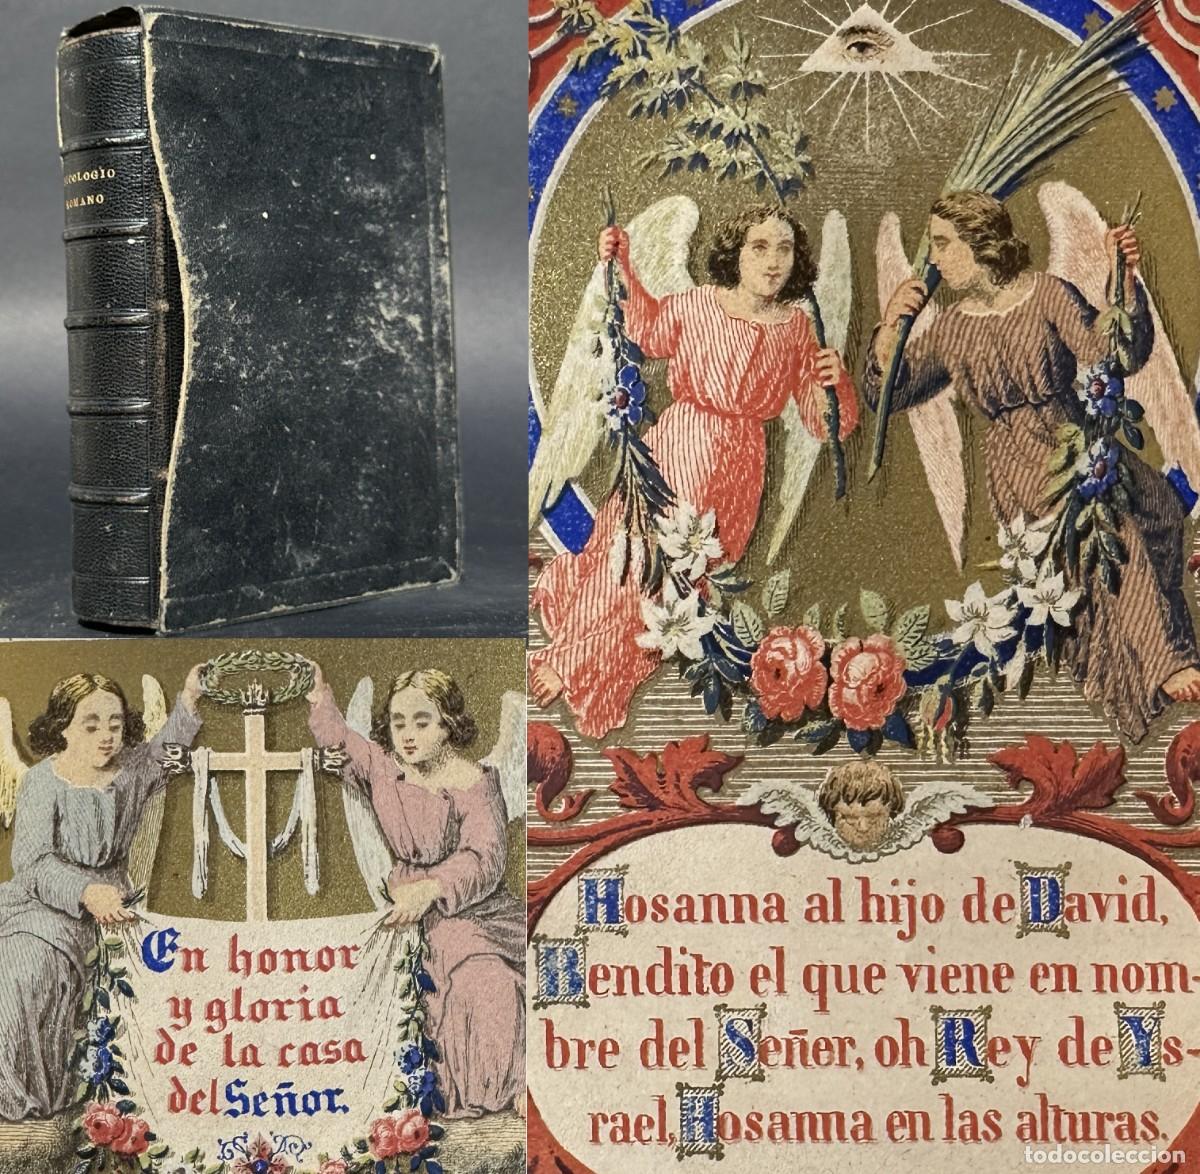 UCOLOGIO
ROMANO
En honor
y gloria
de la casa
del Señor.
Hosanna al hijo de David,
Bendito el que viene en nom-
bre del Señer, oh Rey de Ys-
rael, Hosanna en las alturas.
todocoleccion